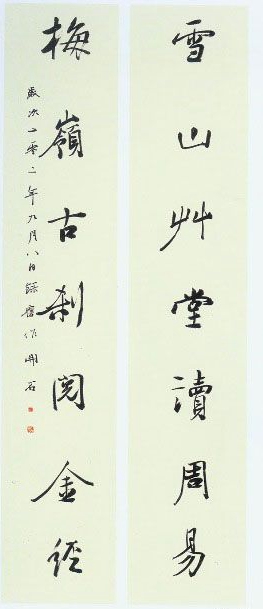 雪山艸堂讀周易
梅嶺古刹閱金經
歲次二零一二年九月八日錄舊作開石